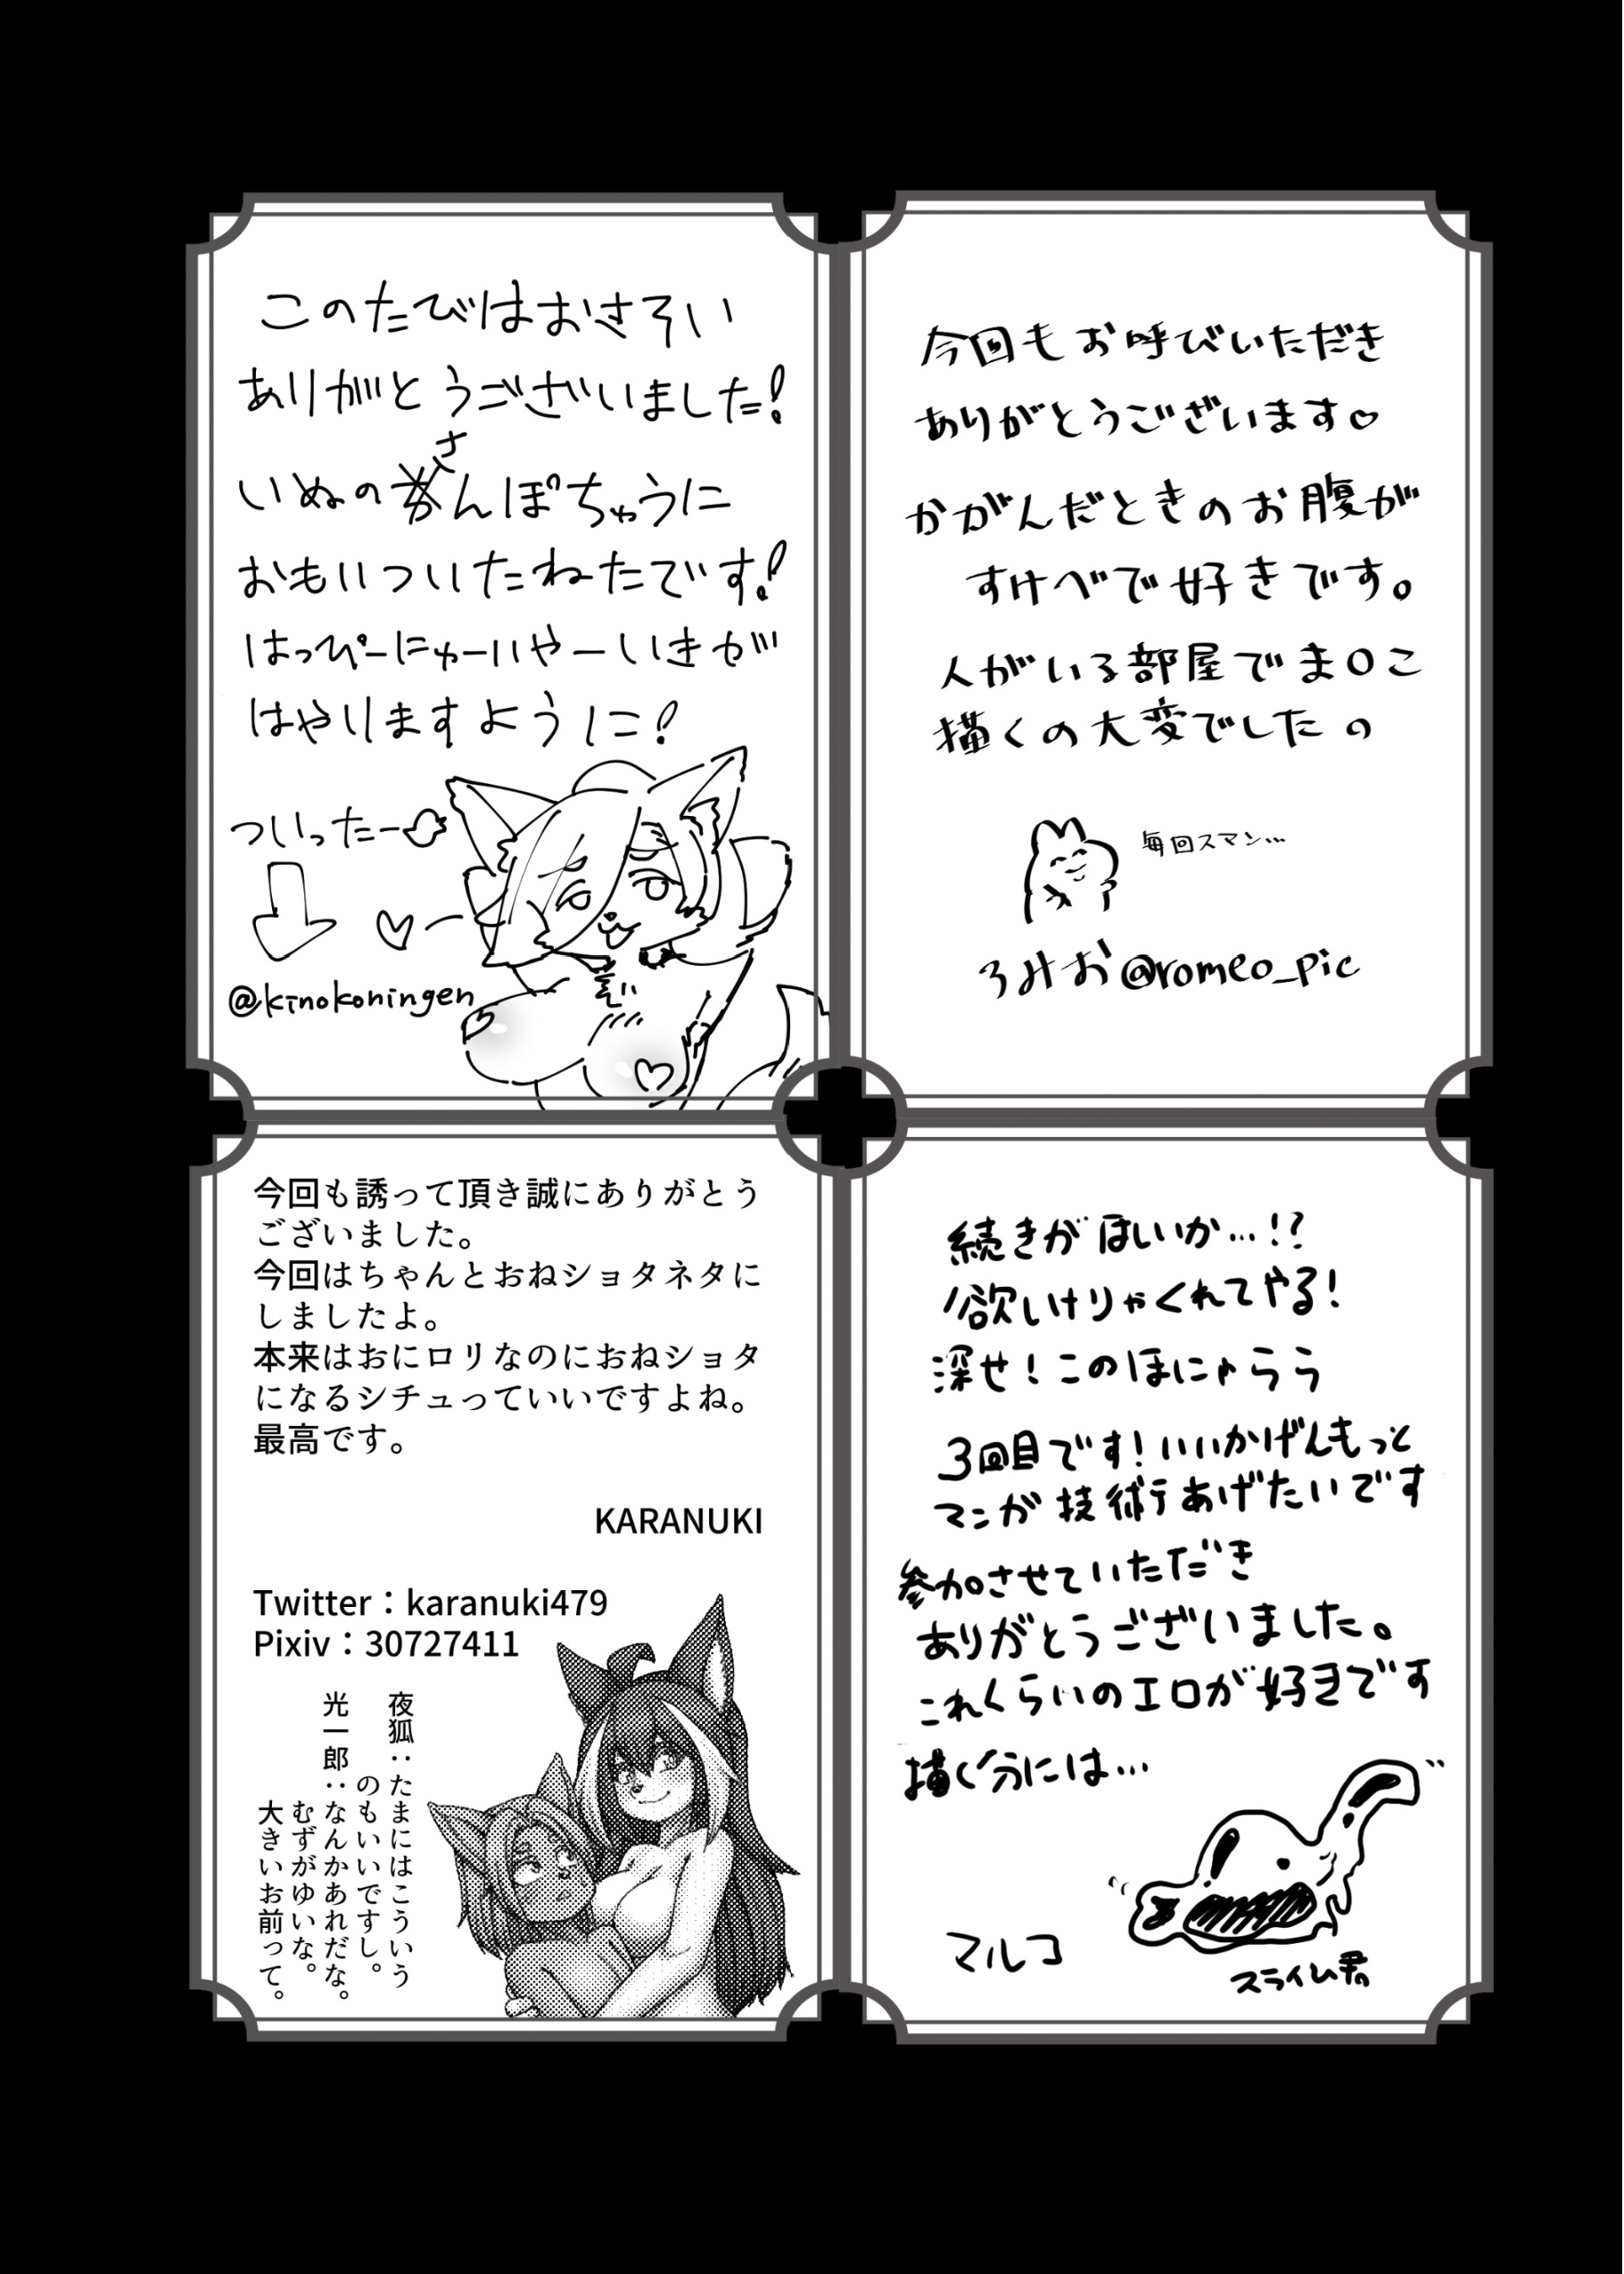 このたびはおさそい
ありがとうございました!
さ
いぬのんぽちゅうに
おもいついたねたです!
はっぴーにゅーいやーいきが
はやりますように!
ついったー
@kinokoningen
今回もお呼びいただき
ありがとうございます♡
かがんだときのお腹が
すけべで好きです。
人がいる部屋でま〇こ
描くの大変でしたの
毎回スマン…
ろみお@romeo_pic
今回も誘って頂き誠にありがとう
ございました。
今回はちゃんとおねショタネタに
しましたよ。
本来はおにロリなのにおねショタ
になるシチュっていいですよね。
最高です。
KARANUKI
Twitter:karanuki479
Pixiv:30727411
夜狐:たまにはこういう
のもいいですし。
光一郎:なんかあれだな。
むずがゆいな。
大きいお前って。
続きがほしいか…!?
欲しけりゃくれてやる!
深せ!このほにゃらら
3回目です!いいかげんもっと
マンガ技術あげたいです
参加させていただき
ありがとうございました。
これくらいのエロが好きです
描く分には…
マルコ
スライム君